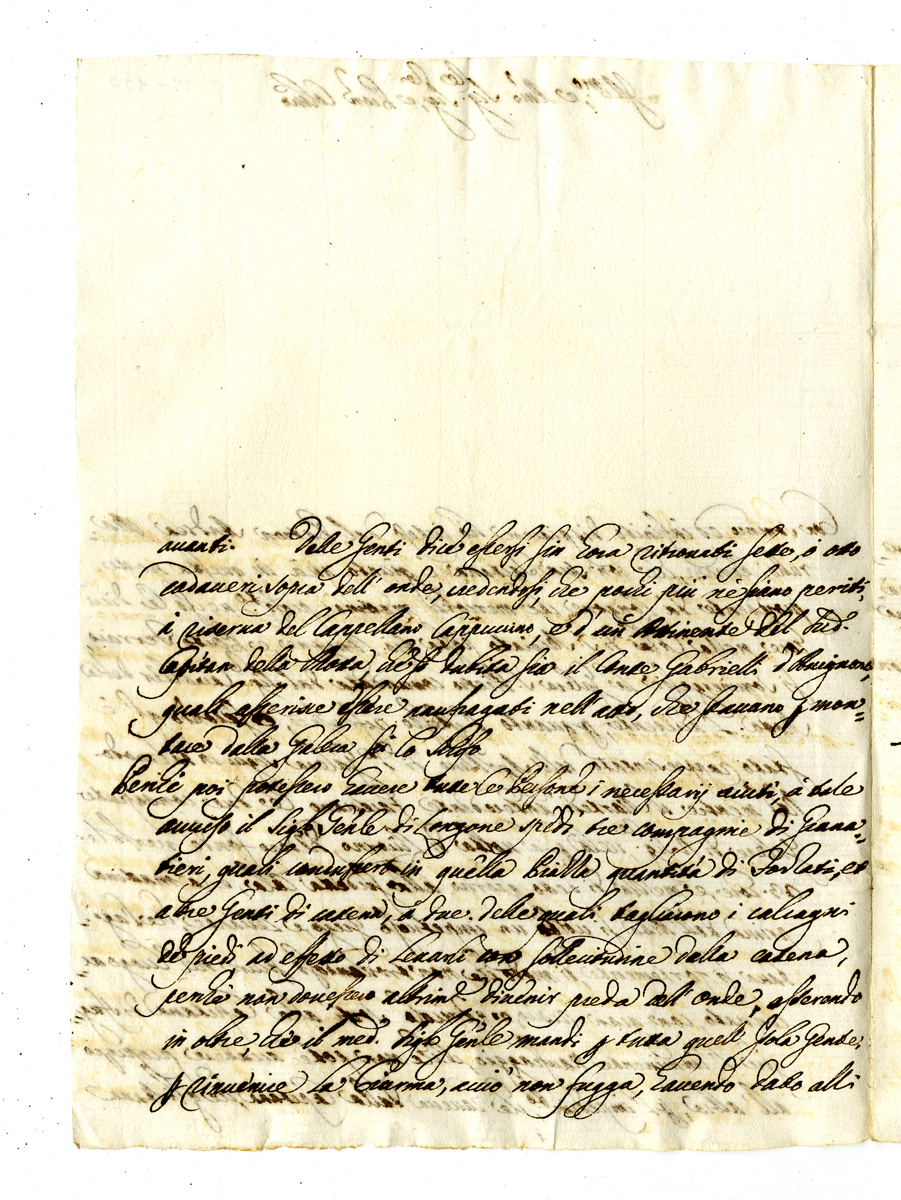 avanti. Delle Genti dice essersi sin hora ritrovati sette, ò otto
cadaveri sopra dell' onde, credendosi, che pochi più ne siano periti,
à riserva del Cappellano Cappuccino, e d' un Attinente del sud.º
Capitan della Motta, che si dubita sia il Conte Gabrielli d' Avignone,
quali asserisce essere naufragati nell' atto, che stavano p mon=
tare dalla Galera sù lo
Perche poi potessero havere tutte le Persone i necessarij aiuti, à tale
avviso il Sig.r Gen̄le di Longone spedì tre compagnie di Grana=
tieri, quali condussero in quella Piazza quantità di Forzati, et
altre Genti di catena, à due delle quali tagliarono i calcagni
de piedi ad effetto di levarli con sollecitudine dalla catena,
perche non dovessero altrim.te divenir preda dell' onde, asserendo
in oltre, che il med.º Sig.r Gen̄le mandi p tutta quell' Isola Gente,
p rinvenire la Ciurma, acciò non fugga, havendo dato alli